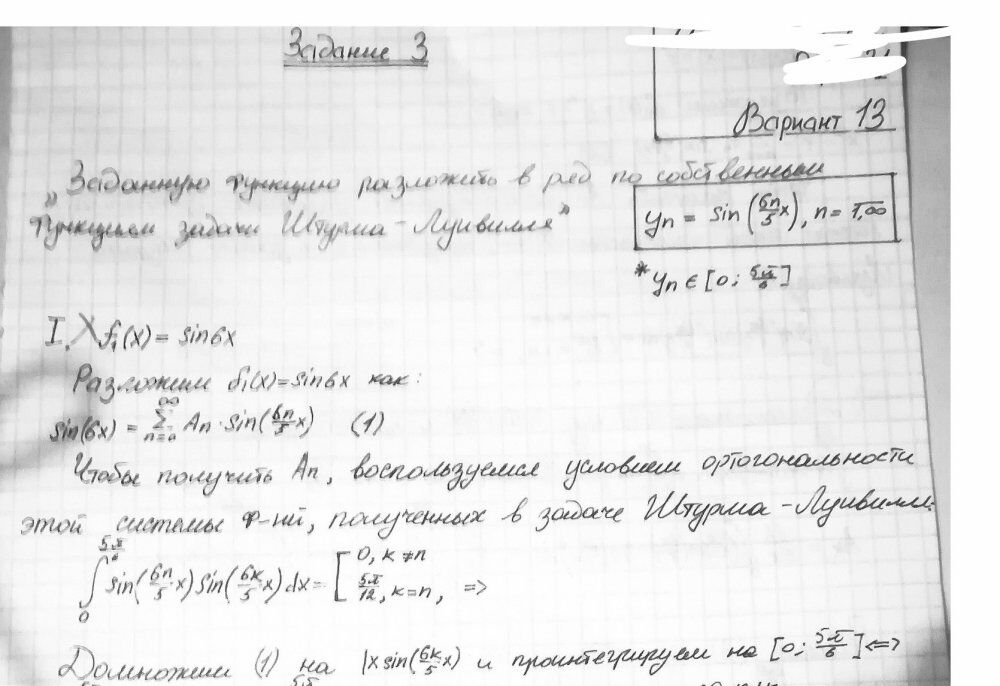 Задание 3
Вариант 13
"Заданную функцию разложить в ряд по собственным
функциям задачи Штурма-Лиувилля"
yn = sin(6n/5 x), n = 1,∞
*yn ∈ [0; 5π/6]
I. f1(x) = sin6x
Разложим f1(x)=sin6x как:
sin(6x) = ∞ Σ n=0 An · sin(6n/5 x) (1)
Чтобы получить An, воспользуемся условием ортогональности
этой системы ф-ий, полученных в задаче Штурма-Лиувилля:
∫ 0 5π/6 sin(6n/5 x) sin(6k/5 x) dx = [ 0, k≠n
5π/12, k=n, =>
Домножим (1) на |x sin(6k/5 x) и проинтегрируем на [0; 5π/6] <=>